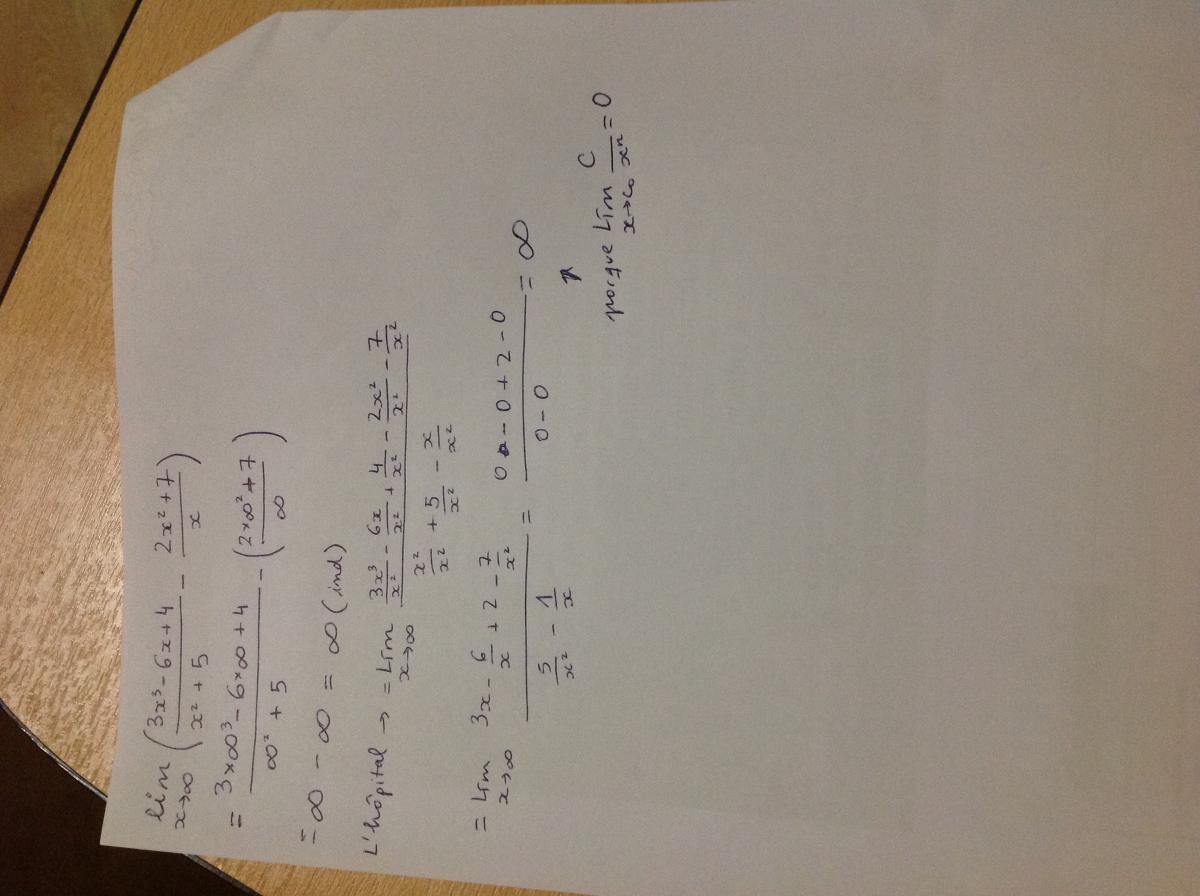 lim x→∞ (3x³-6x+4 / x²+5 - 2x²+7 / x)
= 3×∞³-6×∞+4 / ∞²+5 - (2×∞²+7 / ∞)
= ∞ - ∞ = ∞ (ind)
L'hôpital → = Lim x→∞ 3x³/x² - 6x/x² + 4/x² - 2x²/x² - 7/x² / x²/x² + 5/x² - x/x²
= Lim x→∞ 3x - 6/x + 2 - 7/x² / 5/x² - 1/x = 0 - 0 + 2 - 0 / 0 - 0 = ∞
porque Lim x→∞ C/xⁿ = 0